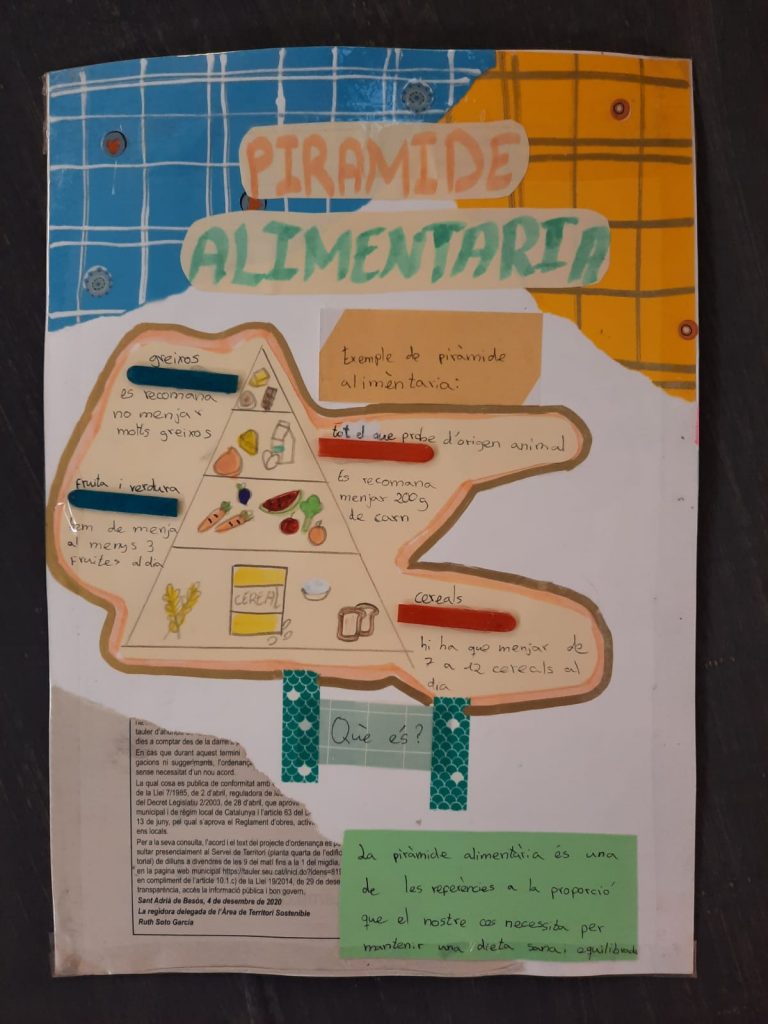 PIRAMIDE
ALIMENTARIA
Exemple de piràmide
alimèntaria:
greixos
es recomana
no menjar
molts greixos
tot el que probe d'origen animal
Es recomana
menjar 200g
de carn
fruita i verdura
em de menja
al menys 3
fruites al dia
CEREAL
cereals
hi ha que menjar de
7 a 12 cereals al
dia
Què és?
tauler d'anuncis
dies a comptar des de la darre
En cas que durant aquest termini
gacions ni suggeriments, l'ordenança
sense necessitat d'un nou acord.
La qual cosa es publica de conformitat amb
de la Llei 7/1985, de 2 d'abril, reguladora de
del Decret Legislatiu 2/2003, de 28 d'abril, que aprova
municipal i de règim local de Catalunya i l'article 63 del
13 de juny, pel qual s'aprova el Reglament d'obres, activ
ens locals.
Per a la seva consulta, l'acord i el text del projecte d'ordenança es
sultar presencialment al Servei de Territori (planta quarta de l'edifici
torial) de dilluns a divendres de les 9 del matí fins a la 1 del migdia,
en la pagina web municipal https://tauler.seu.cat/inici.do?idens=819
en compliment de l'article 10.1.c) de la Llei 19/2014, de 29 de dese
transparència, accés la informació pública i bon govern.
Sant Adrià de Besòs, 4 de desembre de 2020
La regidora delegada de l'Àrea de Territori Sostenible
Ruth Soto García
La piràmide alimentària és una
de les referències a la proporció
que el nostre cos necessita per
mantenir una dieta sana i equilibrada